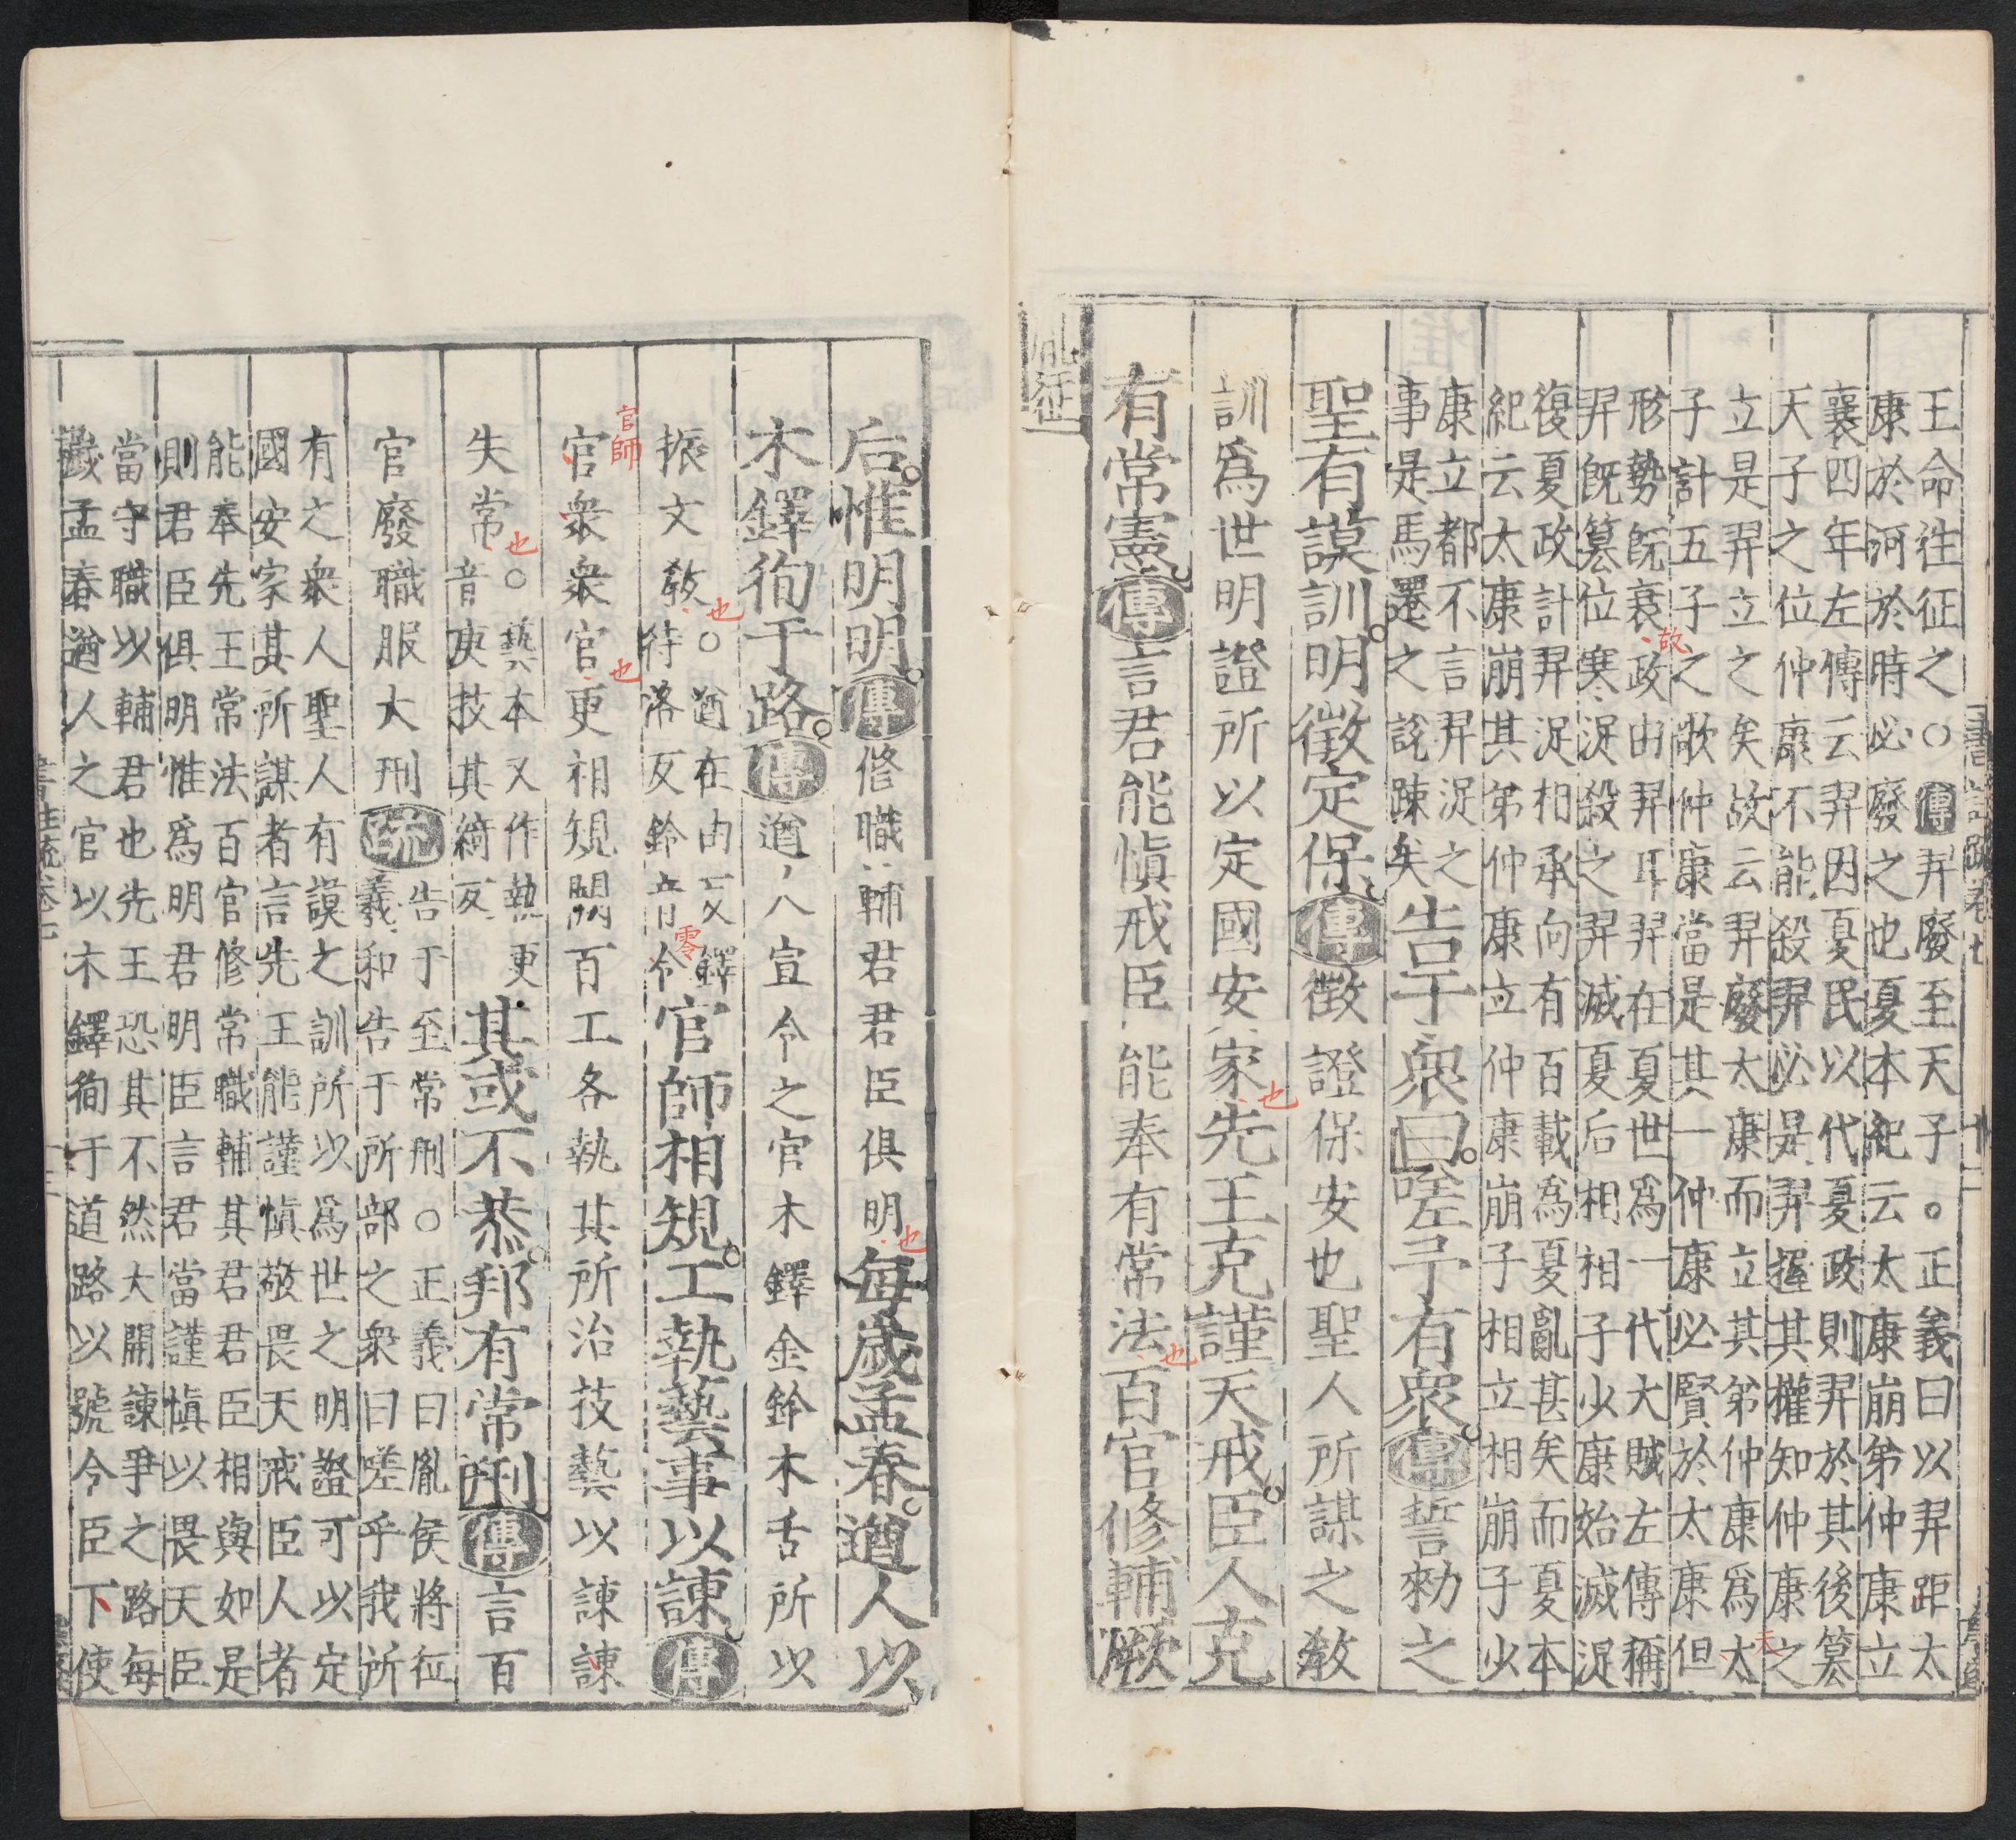 王命徃征之○傳羿廢至天子○正義曰以羿距太
康於河於時必廢之也夏本紀云太康崩弟仲康立
襄四年左傳云羿因夏民以代夏政則羿於其後篡
天子之位仲康不能殺羿必是羿握其權知仲康之
立是羿立之矣故云羿廢太康而立其弟仲康爲太
子計五子之歌仲康當是其一仲康必賢於太康但
形勢旣衰政由羿耳羿在夏世爲一代大賊左傳稱
羿旣篡位寒浞殺之羿滅夏后相相子少康始滅浞
復夏政計羿浞相承向有百載爲夏亂甚矣而夏本
紀云太康崩其弟仲康立仲康崩子相立相崩子少
康立都不言羿浞之
事是馬遷之說疎矣告于衆曰嗟予有衆傳誓勑之
聖有謨訓明徵定保傳徵證保安也聖人所謀之敎
訓爲世明證所以定國安家先王克謹天戒臣人克
有常憲傳言君能愼戒臣能奉有常法百官修輔厥
胤征
后惟明明傳修職輔君君臣俱明每歲孟春遒人以
木鐸徇于路傳遒人宣令之官木鐸金鈴木舌所以
振文敎○遒在由反鐸
待落反鈴音令官師相規工執藝事以諫傳
官衆衆官更相規闕百工各執其所治技藝以諫諫
失常○藝本又作埶更
音庚技其綺反其或不恭邦有常刑傳言百
官廢職服大刑疏告于至常刑○正義曰胤侯將征
羲和告于所部之衆曰嗟乎我所
有之衆人聖人有謨之訓所以爲世之明證可以定
國安家其所謀者言先王能謹愼敬畏天戒臣人者
能奉先王常法百官修常職輔其君君臣相與如是
則君臣俱明惟爲明君明臣言君當謹愼以畏天臣
當守職以輔君也先王恐其不然大開諫爭之路每
歲孟春遒人之官以木鐸徇于道路以號令臣下使
故
未
也
也
也
也
零
官師
也
也